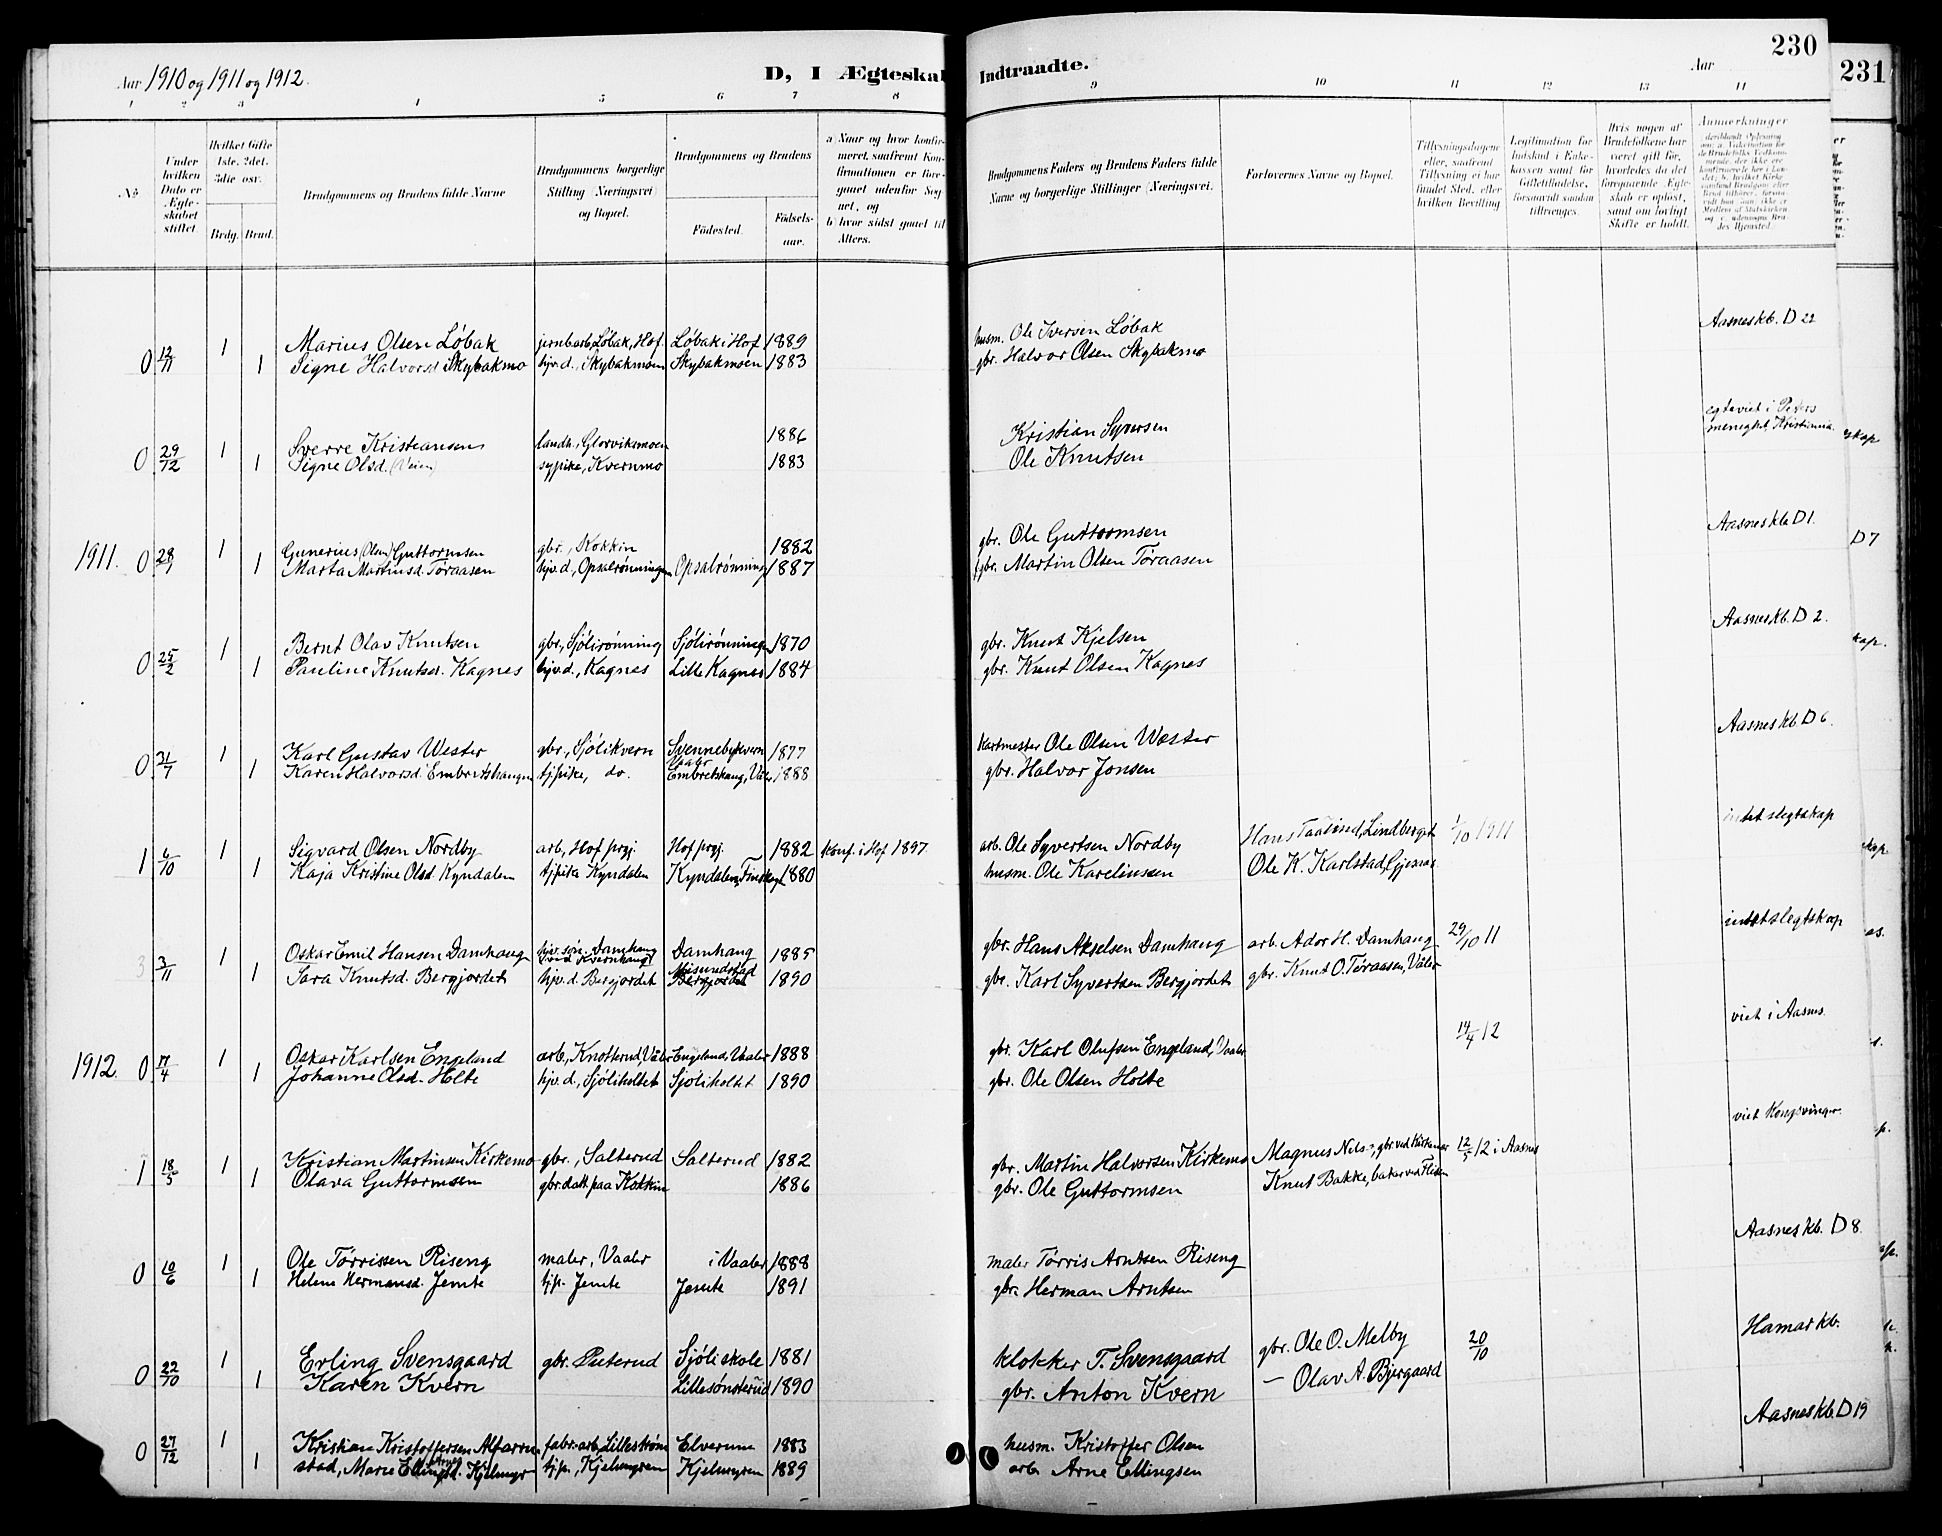 Aar 1910 og 1911 og 1912.
D, I Ægteskab Indtraadte.
Aar
230
231
1 2 3 4 5 6 7 8 9 10 11 12 13 14
No
Under hvilken Dato er Ægteskabet stiftet.
Hvilket Gifte 1ste, 2det, 3die osv.
Brdg. Brud.
Brudgommens og Brudens fulde Navne
Brudgommens borgerlige Stilling (Næringsvei) og Bopæl.
Brudgommens og Brudens
Födested.
Födselsaar.
a) Naar og hvor konfirmeret, saafremt Konfirmationen er foregaaet udenfor Sognet, og
b) hvor sidst gaaet til Alters.
Brudgommens Faders og Brudens Faders fulde Navne og borgerlige Stillinger (Næringsvei).
Forlovernes Navne og Bopæl.
Tillysningsdagene eller, saafremt Tillysning ei har fundet Sted, efter hvilken Bevilling
Legitimation for Indskud i Enkekassen samt for Giftetilladelse, forsaavidt saadan tiltrænges.
Hvis nogen af Brudefolkene har været gift før, hvorledes da det foregaaende Ægteskab er opløst, samt om lovligt Skifte er holdt.
Anmerkninger
0 12/11 1 Marius Olsen Løbak jernbarb, Løbak, Hof. Løbak i Hof 1889 husm. Ole Iversen Løbak Aasnes kb. D 22
1 Signe Halvorsd. Skybakmo hjv.d., Skybakmoen Skybakmoen 1883 gbr. Halvor Olsen Skybakmo
0 29/12 1 Sverre Kristiansen landh., Glorviksmoen 1886 Kristian Syversen egteviet i Peters menighet, Kristiania
1 Signe Olsd. (Veien) sypike, Kvernmo 1883 Ole Knutsen
1911. 0 28/1 1 Gunerius (Olsen) Guttormsen gbr., Kokkin 1882 gbr. Ole Guttormsen Aasnes kb D 1.
1 Marta Martinsd. Tøraasen hjv.d., Opsalrønningen Opsalrønning 1887 gbr. Martin Olsen Tøraasen
0 25/2 1 Bernt Olav Knutsen gbr., Sjölirönning Sjölirönningen 1870 gbr. Knut Kjelsen Aasnes kb. D 2.
1 Pauline Knutsd. Kagnes hjv.d., Kagnes Lille Kagnes 1884 gbr. Knut Olsen Kagnes
0 21/7 1 Karl Gustav Wester gbr., Sjölikvern Svennebykvern Vaaler 1877 Ole Olsen Wester Aasnes kb. D 6.
1 Karen Halvorsd. Embretshaugen tjpike, do. Embretshaug, Våler 1888 gbr. Halvor Jonsen
1 6/10 1 Sigvard Olsen Nordby arb., Hof prgj. Hof prgj. 1882 Konf. i Hof 1897 arb. Ole Syvertsen Nordby Hans Lindberget 1/10 1911 intet slegtskap
1 Kaja Kristine Olsd. Kyndalen tjpike Kyndalen Kyndalen, Finskog 1880 husm. Ole Karelinssen Ole K. Karlstad, Gjesaas
3 3/11 1 Oskar Emil Hansen Damhaug Damhaug Damhaug 1885 gbr. Hans Akselsen Damhaug arb. Ador H. Damhaug 29/10 11 intet slegtskap
1 Sara Knutsd. Bergjordet hjv.d. Bergjordet Bergjordet 1890 gbr. Karl Syvertsen Bergjordet gbr. Knut O. Tøraasen, Våler
1912. 0 17/4 1 Oskar Karlsen Engeland arb., Knotterud, Våler Engeland, Vaaler 1888 gbr. Karl Olufsen Engeland, Vaaler 14/4 12 viet i Aasnes.
1 Johanne Olsd. Holte hjv.d., Sjöliholtet Sjöliholtet 1890 gbr. Ole Olsen Holte
1 18/5 1 Kristian Martinsen Kirkemo gbr., Salterud Salterud 1882 gbr. Martin Halvorsen Kirkemo Magnus Nils-, gbr. ved 12/5 12 i Aasnes viet Kongsvinger.
1 Olava Guttormsen gbr datt paa Kokkin 1886 gbr. Ole Guttormsen Knut Bakke, baker ved Flisen
0 10/6 1 Ole Tørrissen Riseng maler, Vaaler i Vaaler 1888 maler Tørris Arntsen Riseng Aasnes kb. D 8.
1 Helene Hermansd. Jemte tjp. Jemte Jemte 1891 gbr. Herman Arntsen
0 22/10 1 Erling Svensgaard gbr. Puterud Sjöliskole 1881 klokker T. Svensgaard gbr. Ole O. Melby 20/10 Hamar kb.
1 Karen Kvern Lillesönsterud 1890 gbr. Anton Kvern — Olav A. Bjergaard
0 27/12 1 Kristian Kristoffersen Alfarrustad, fabr-arb, Lillestrøm Elverum 1883 husm. Kristoffer Olsen Aasnes kb. D 19
1 Marie Ellingsd. Arnesd. Kjelmyr tjp., Kjelmyren Kjelmyren 1889 arb. Arne Ellingsen